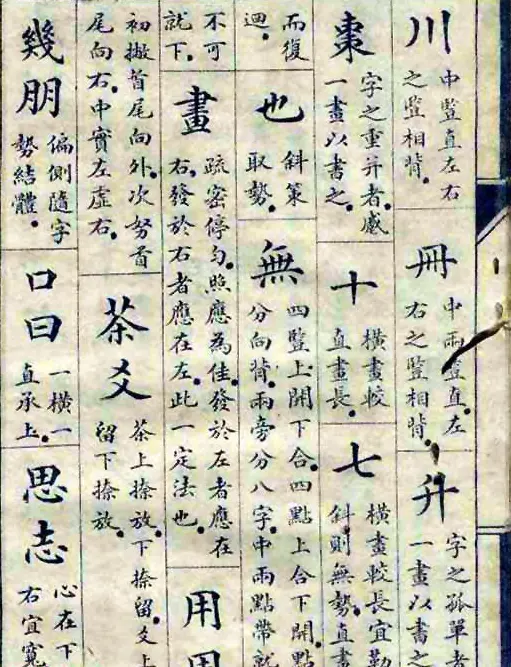 川
中豎直左右
之豎相背
冊
中兩豎直左
右之豎相背
升
字之孤單者
一畫以書之
棗
字之重并者
一畫以書之
十
橫畫較
直畫長
七
橫畫較長宜勒
斜則無勢直畫
而復
迴
也
斜策
取勢
無
四豎上開下合四點上合下開點
分向背兩旁分八字中兩點帶就
不可
就下
畫
疏密停勻照應為佳發於左者應在
右發於右者應在左此一定法也
用
初撇首尾向外次努首
尾向右中實左虛右
茶爻
茶上捺放下捺留爻上
留下捺放
幾朋
偏側隨字
勢結體
口曰
一橫一
直承上
思志
心在下
右宜寬